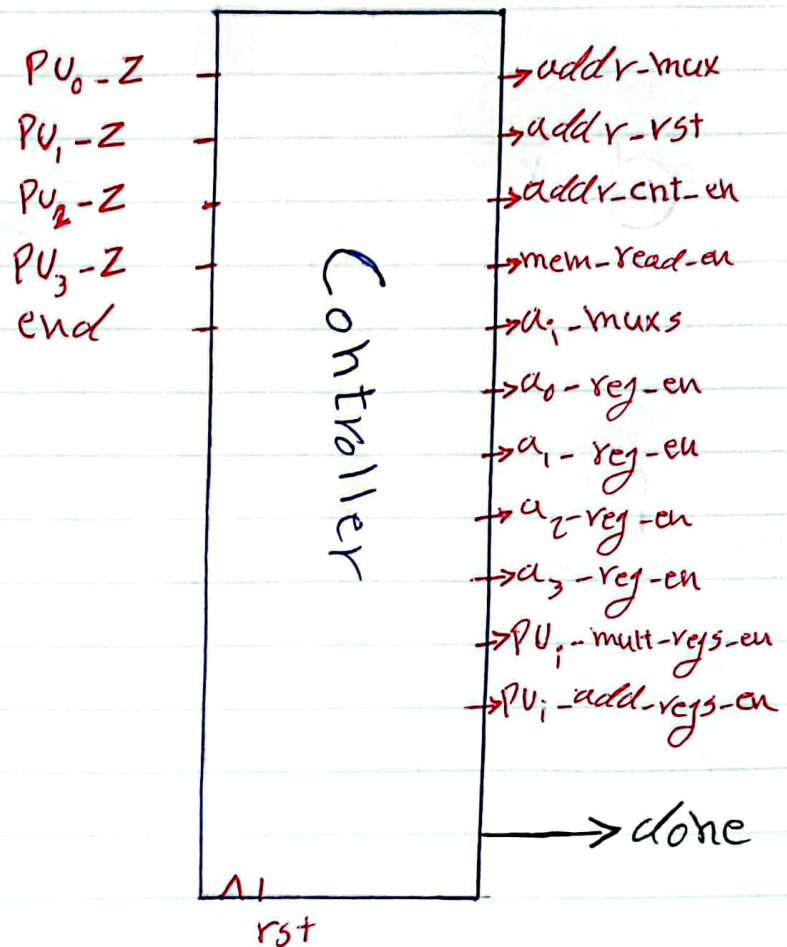 PU₀-Z
PU₁-Z
PU₂-Z
PU₃-Z
end
Controller
addr-mux
addr-rst
addr-cnt-en
mem-read-en
aᵢ-muxs
a₀-reg-en
a₁-reg-en
a₂-reg-en
a₃-reg-en
PUᵢ-mult-regs-en
PUᵢ-add-regs-en
done
rst